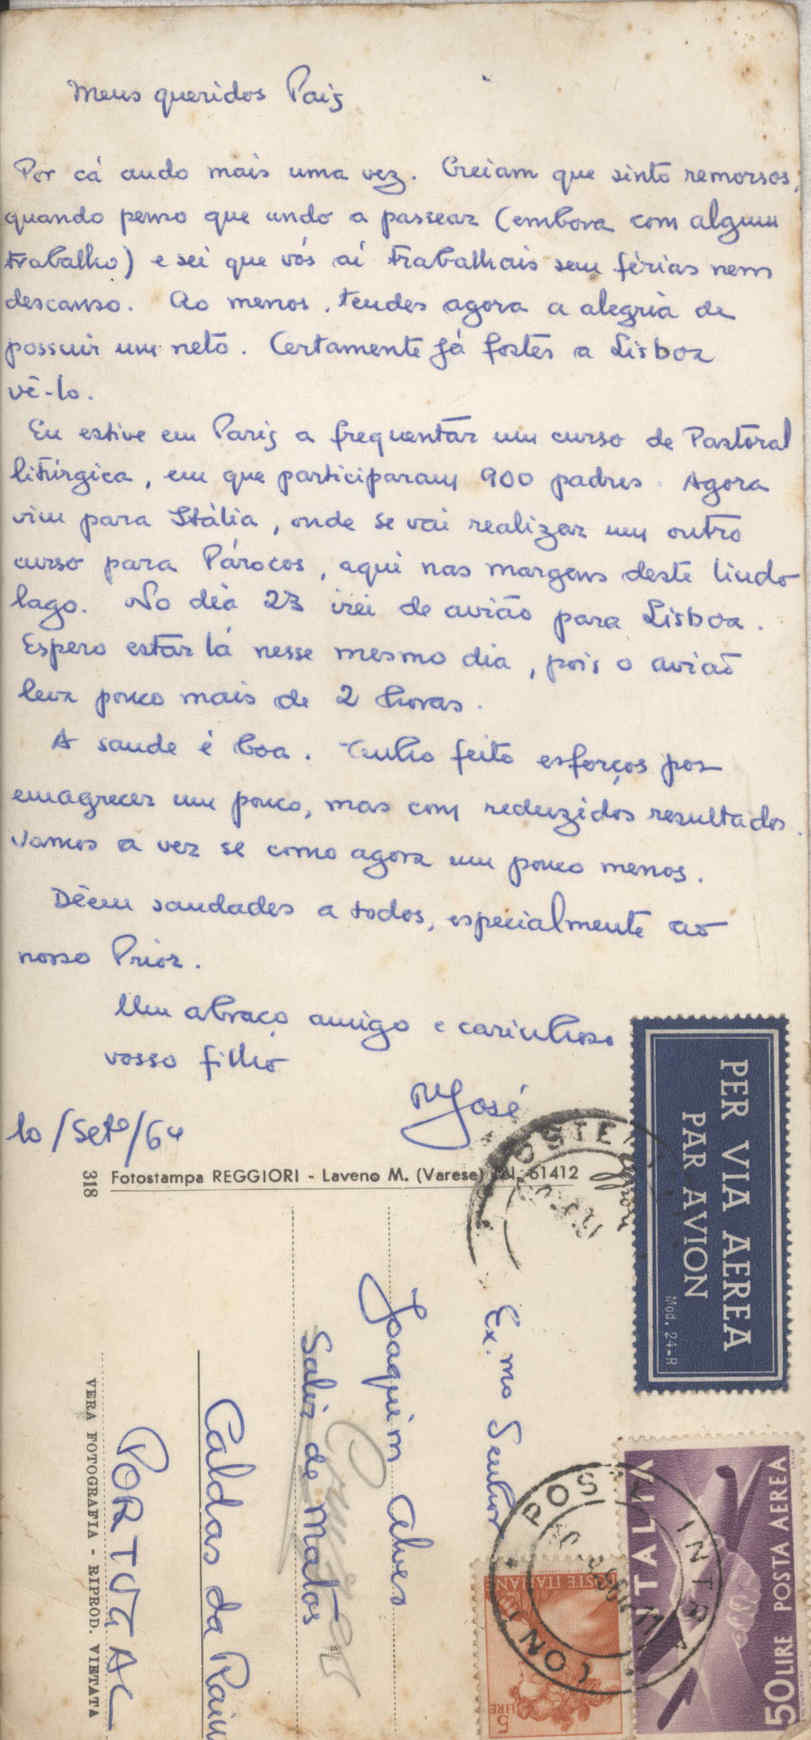 Meus queridos Pais
Por cá ando mais uma vez. Creiam que sinto remorsos,
quando penso que ando a passear (embora com algum
trabalho) e sei que vós aí trabalhais sem férias nem
descanso. Ao menos, tendes agora a alegria de
possuir um neto. Certamente já fostes a Lisboa
vê-lo.
Eu estive em Paris a frequentar um curso de Pastoral
litúrgica, em que participaram 900 padres. Agora
vim para Itália, onde se vai realizar um outro
curso para Párocos, aqui nas margens deste lindo
lago. No dia 23 irei de avião para Lisboa.
Espero estar lá nesse mesmo dia, pois o avião
leva pouco mais de 2 horas.
A saude é boa. Tenho feito esforços por
emagrecer um pouco, mas com reduzidos resultados.
Vamos a ver se como agora um pouco menos.
Dêem saudades a todos, especialmente ao
nosso Prior.
Um abraço amigo e carinhoso
vosso filho
José
10/Setº/64
318
Fotostampa REGGIORI - Laveno M. (Varese) 61412
PER VIA AEREA
PAR AVION
Mod. 24-B
Ex.mo Senhor
Joaquim Alves
Salir de Matos
Caldas da Rain
PORTUGAL
VERA FOTOGRAFIA - RIPROD. VIETATA
ITALIA
50 LIRE POSTA AEREA
POSTE ITALIANE
5 LIRE